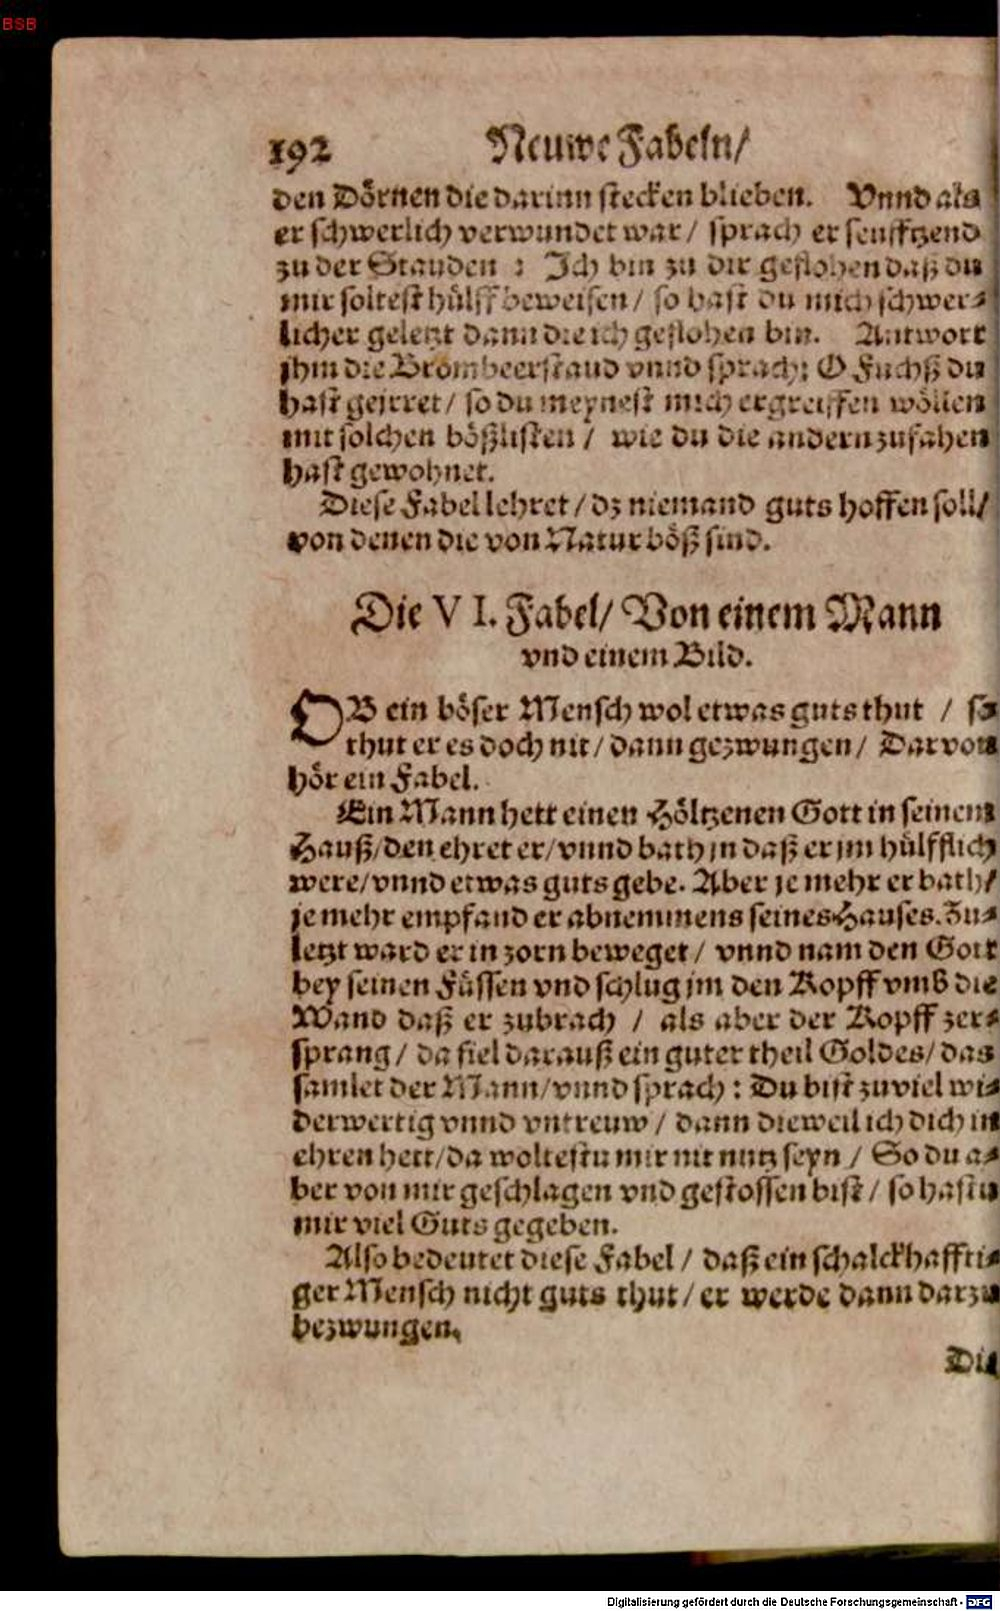 BSB
192 Neuwe Fabeln/
den Dörnen die darinn stecken blieben. Vnnd als
er schwerlich verwundet war / sprach er seufftzend
zu der Stauden : Ich bin zu dir geflohen daß du
mir soltest hülff beweisen / so hast du mich schwer-
licher geletzt dann die ich geflohen bin. Antwort
jhm die Brombeerstaud vnnd sprach: O Fuchß du
hast geirret / so du meynest mich ergreiffen wöllen
mit solchen bößlisten / wie du die andern zufahen
hast gewohnet.
Diese Fabel lehret / dz niemand guts hoffen soll/
von denen die von Natur böß sind.
Die VI. Fabel/ Von einem Mann
vnd einem Bild.
OB ein böser Mensch wol etwas guts thut / so
thut er es doch nit / dann gezwungen / Darvon
hör ein Fabel.
Ein Mann hett einen Höltzenen Gott in seinem
Hauß/den ehret er/vnnd bath jn daß er jm hülfflich
were/vnnd etwas guts gebe. Aber je mehr er bath/
je mehr empfand er abnemmens seines Hauses. Zu-
letzt ward er in zorn beweget / vnnd nam den Gott
bey seinen Füssen vnd schlug jm den Kopff vmb die
Wand daß er zubrach / als aber der Kopff zer-
sprang / da fiel darauß ein guter theil Goldes/ das
samlet der Mann/vnnd sprach : Du bist zuviel wi-
derwertig vnnd vntreuw / dann dieweil ich dich in
ehren hett/da woltestu mir nit nutz seyn / So du a-
ber von mir geschlagen vnd gestossen bist / so hastu
mir viel Guts gegeben.
Also bedeutet diese Fabel / daß ein schalckhaffti-
ger Mensch nicht guts thut / er werde dann darzu
bezwungen.
Die
Digitalisierung gefördert durch die Deutsche Forschungsgemeinschaft - DFG